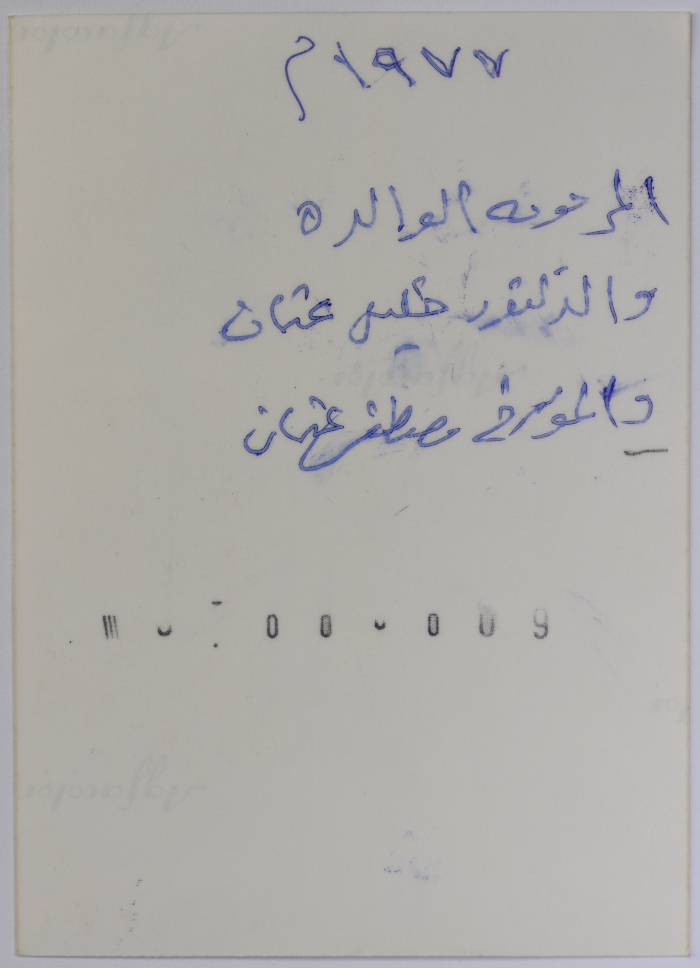 ١٩٧٧م
المرحومه الوالده
والدكتور خليل عثمان
والمؤرخ مصطفى عثمان
00 009
Agfacolor
Agfacolor
Agfacolor